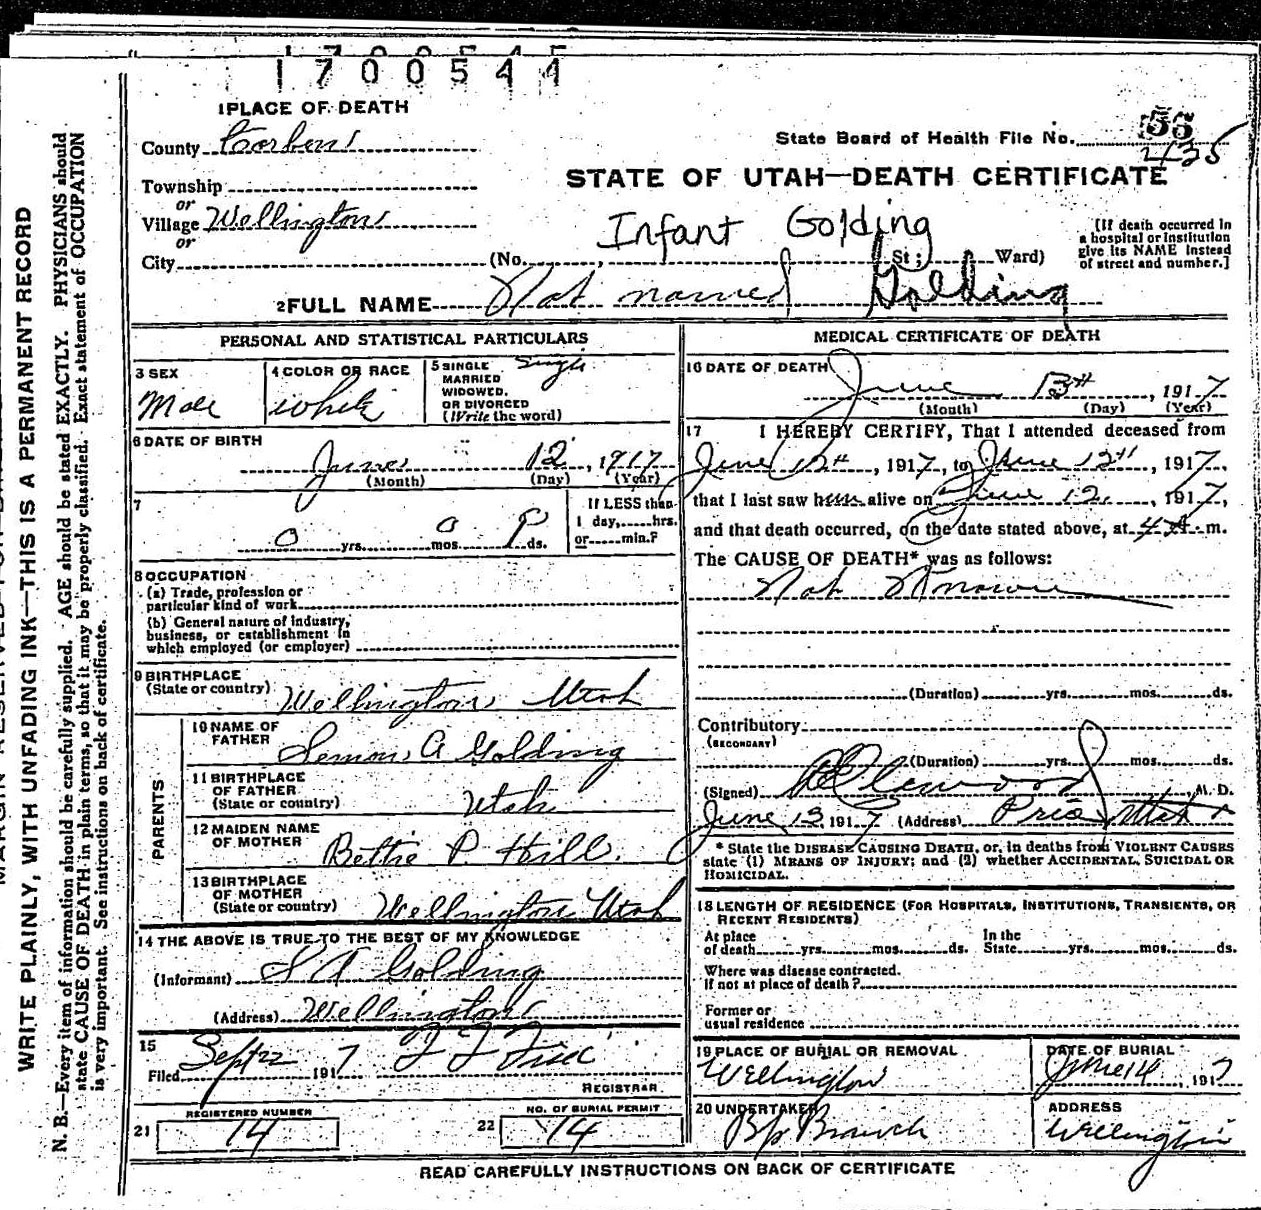 1700544
1 PLACE OF DEATH
County Carbon
State Board of Health File No. 55
435
Township
or
STATE OF UTAH—DEATH CERTIFICATE
Village Wellington
or
Infant Golding
City (No. , St; Ward)
[If death occurred in
a hospital or institution
give its NAME instead
of street and number.]
2 FULL NAME Not named Golding
PERSONAL AND STATISTICAL PARTICULARS
3 SEX
Male
4 COLOR OR RACE
white
5 SINGLE
MARRIED
WIDOWED,
OR DIVORCED
(Write the word)
Single
6 DATE OF BIRTH
June 12, 1917
(Month) (Day) (Year)
7
0 yrs. 0 mos. ds.
If LESS than
1 day, hrs.
or min.?
8 OCCUPATION
(a) Trade, profession or
particular kind of work
(b) General nature of industry,
business, or establishment in
which employed (or employer)
9 BIRTHPLACE
(State or country) Wellington, Utah
PARENTS
10 NAME OF
FATHER
A Golding
11 BIRTHPLACE
OF FATHER
(State or country) Utah
12 MAIDEN NAME
OF MOTHER Bettie P. Hill.
13 BIRTHPLACE
OF MOTHER
(State or country) Wellington Utah
14 THE ABOVE IS TRUE TO THE BEST OF MY KNOWLEDGE
(Informant) S A Golding
(Address) Wellington
15
Filed Sept 22 1917
REGISTRAR
REGISTERED NUMBER
21 14
NO. OF BURIAL PERMIT
22 14
MEDICAL CERTIFICATE OF DEATH
16 DATE OF DEATH
June 13th, 1917
(Month) (Day) (Year)
17 I HEREBY CERTIFY, That I attended deceased from
June 12th, 1917, to June 12th, 1917,
that I last saw him alive on June 12, 1917,
and that death occurred, on the date stated above, at 4 A. m.
The CAUSE OF DEATH* was as follows:
Not Known
(Duration) yrs. mos. ds.
Contributory
(SECONDARY)
(Duration) yrs. mos. ds.
(Signed) , M. D.
June 13, 1917 (Address) Price Utah
* State the DISEASE CAUSING DEATH, or, in deaths from VIOLENT CAUSES
state (1) MEANS OF INJURY; and (2) whether ACCIDENTAL, SUICIDAL OR
HOMICIDAL.
18 LENGTH OF RESIDENCE (FOR HOSPITALS, INSTITUTIONS, TRANSIENTS, OR
RECENT RESIDENTS)
At place
of death yrs. mos. ds.
In the
State yrs. mos. ds.
Where was disease contracted,
If not at place of death?
Former or
usual residence
19 PLACE OF BURIAL OR REMOVAL
Wellington
DATE OF BURIAL
June 14, 1917
20 UNDERTAKER
Branch
ADDRESS
Wellington
READ CAREFULLY INSTRUCTIONS ON BACK OF CERTIFICATE
WRITE PLAINLY, WITH UNFADING INK—THIS IS A PERMANENT RECORD
N. B.—Every item of information should be carefully supplied. AGE should be stated EXACTLY. PHYSICIANS should
state CAUSE OF DEATH in plain terms, so that it may be properly classified. Exact statement of OCCUPATION
is very important. See instructions on back of certificate.